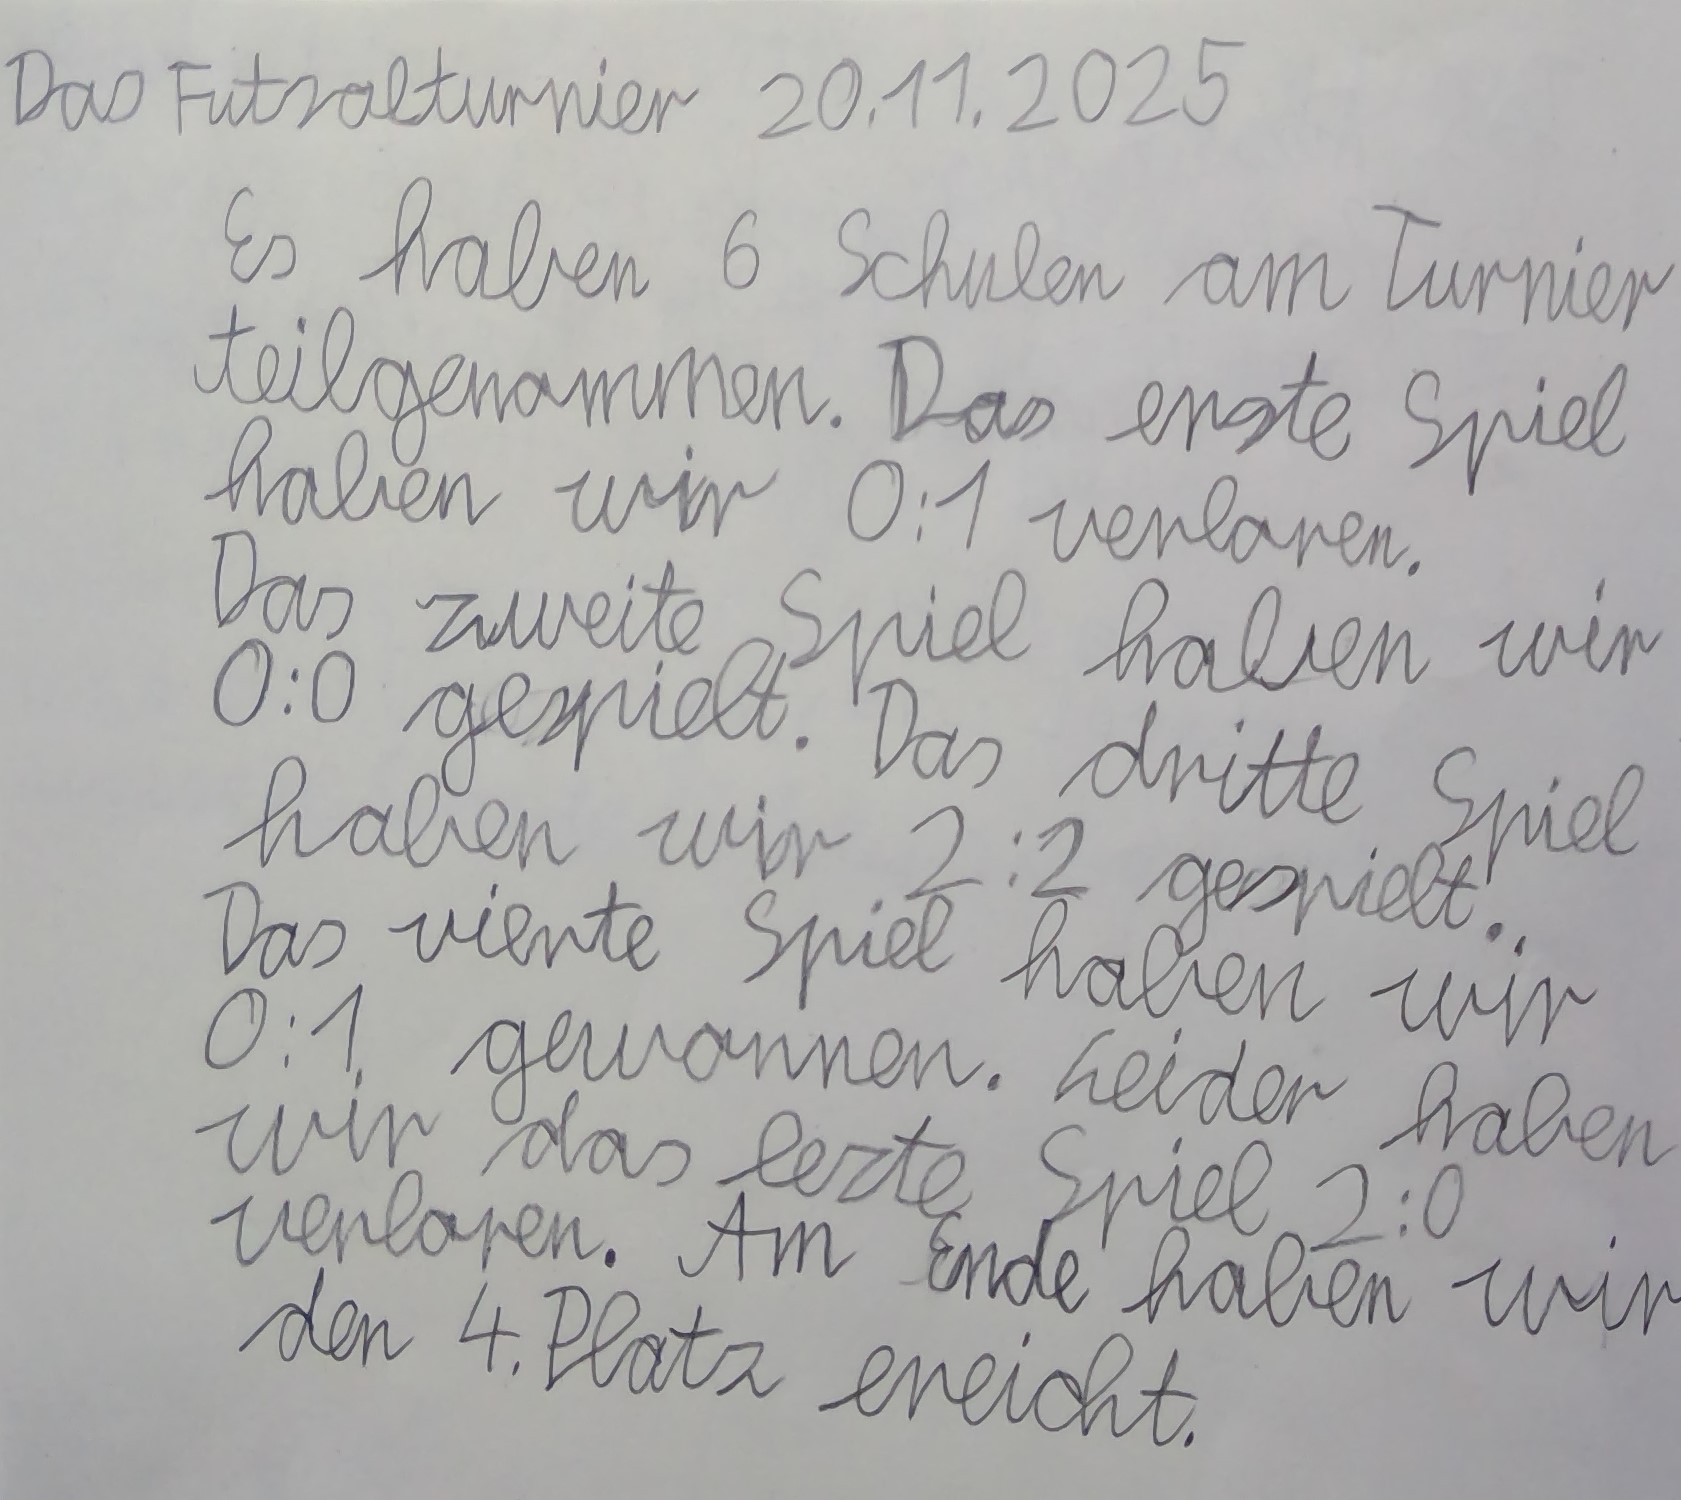 Das Futzalturnier 20.11.2025
Es haben 6 Schulen am Turnier
teilgenommen. Das erste Spiel
haben wir 0:1 verloren.
Das zweite Spiel haben wir
0:0 gespielt. Das dritte Spiel
haben wir 2:2 gespielt.
Das vierte Spiel haben wir
0:1 gewonnen. Leider haben
wir das lezte Spiel 2:0
verloren. Am Ende haben wir
den 4. Platz ereicht.